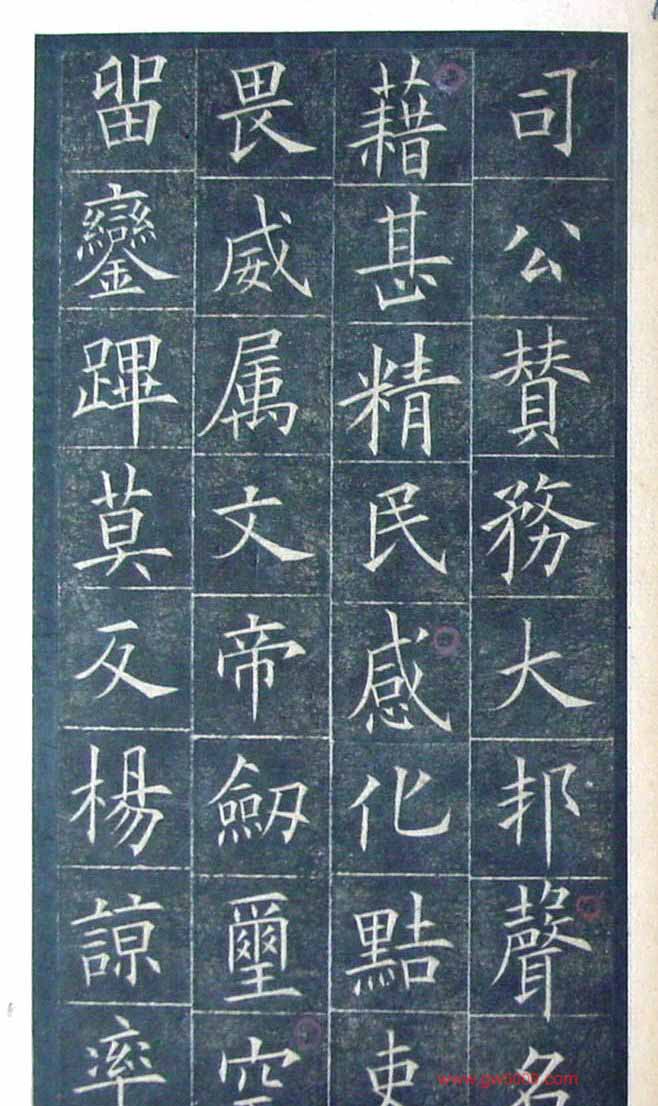 司公賛務大邦聲名
藉甚精民感化黠吏
畏威属文帝劒璽空
留鑾蹕莫反楊諒率
www.gw5000.com